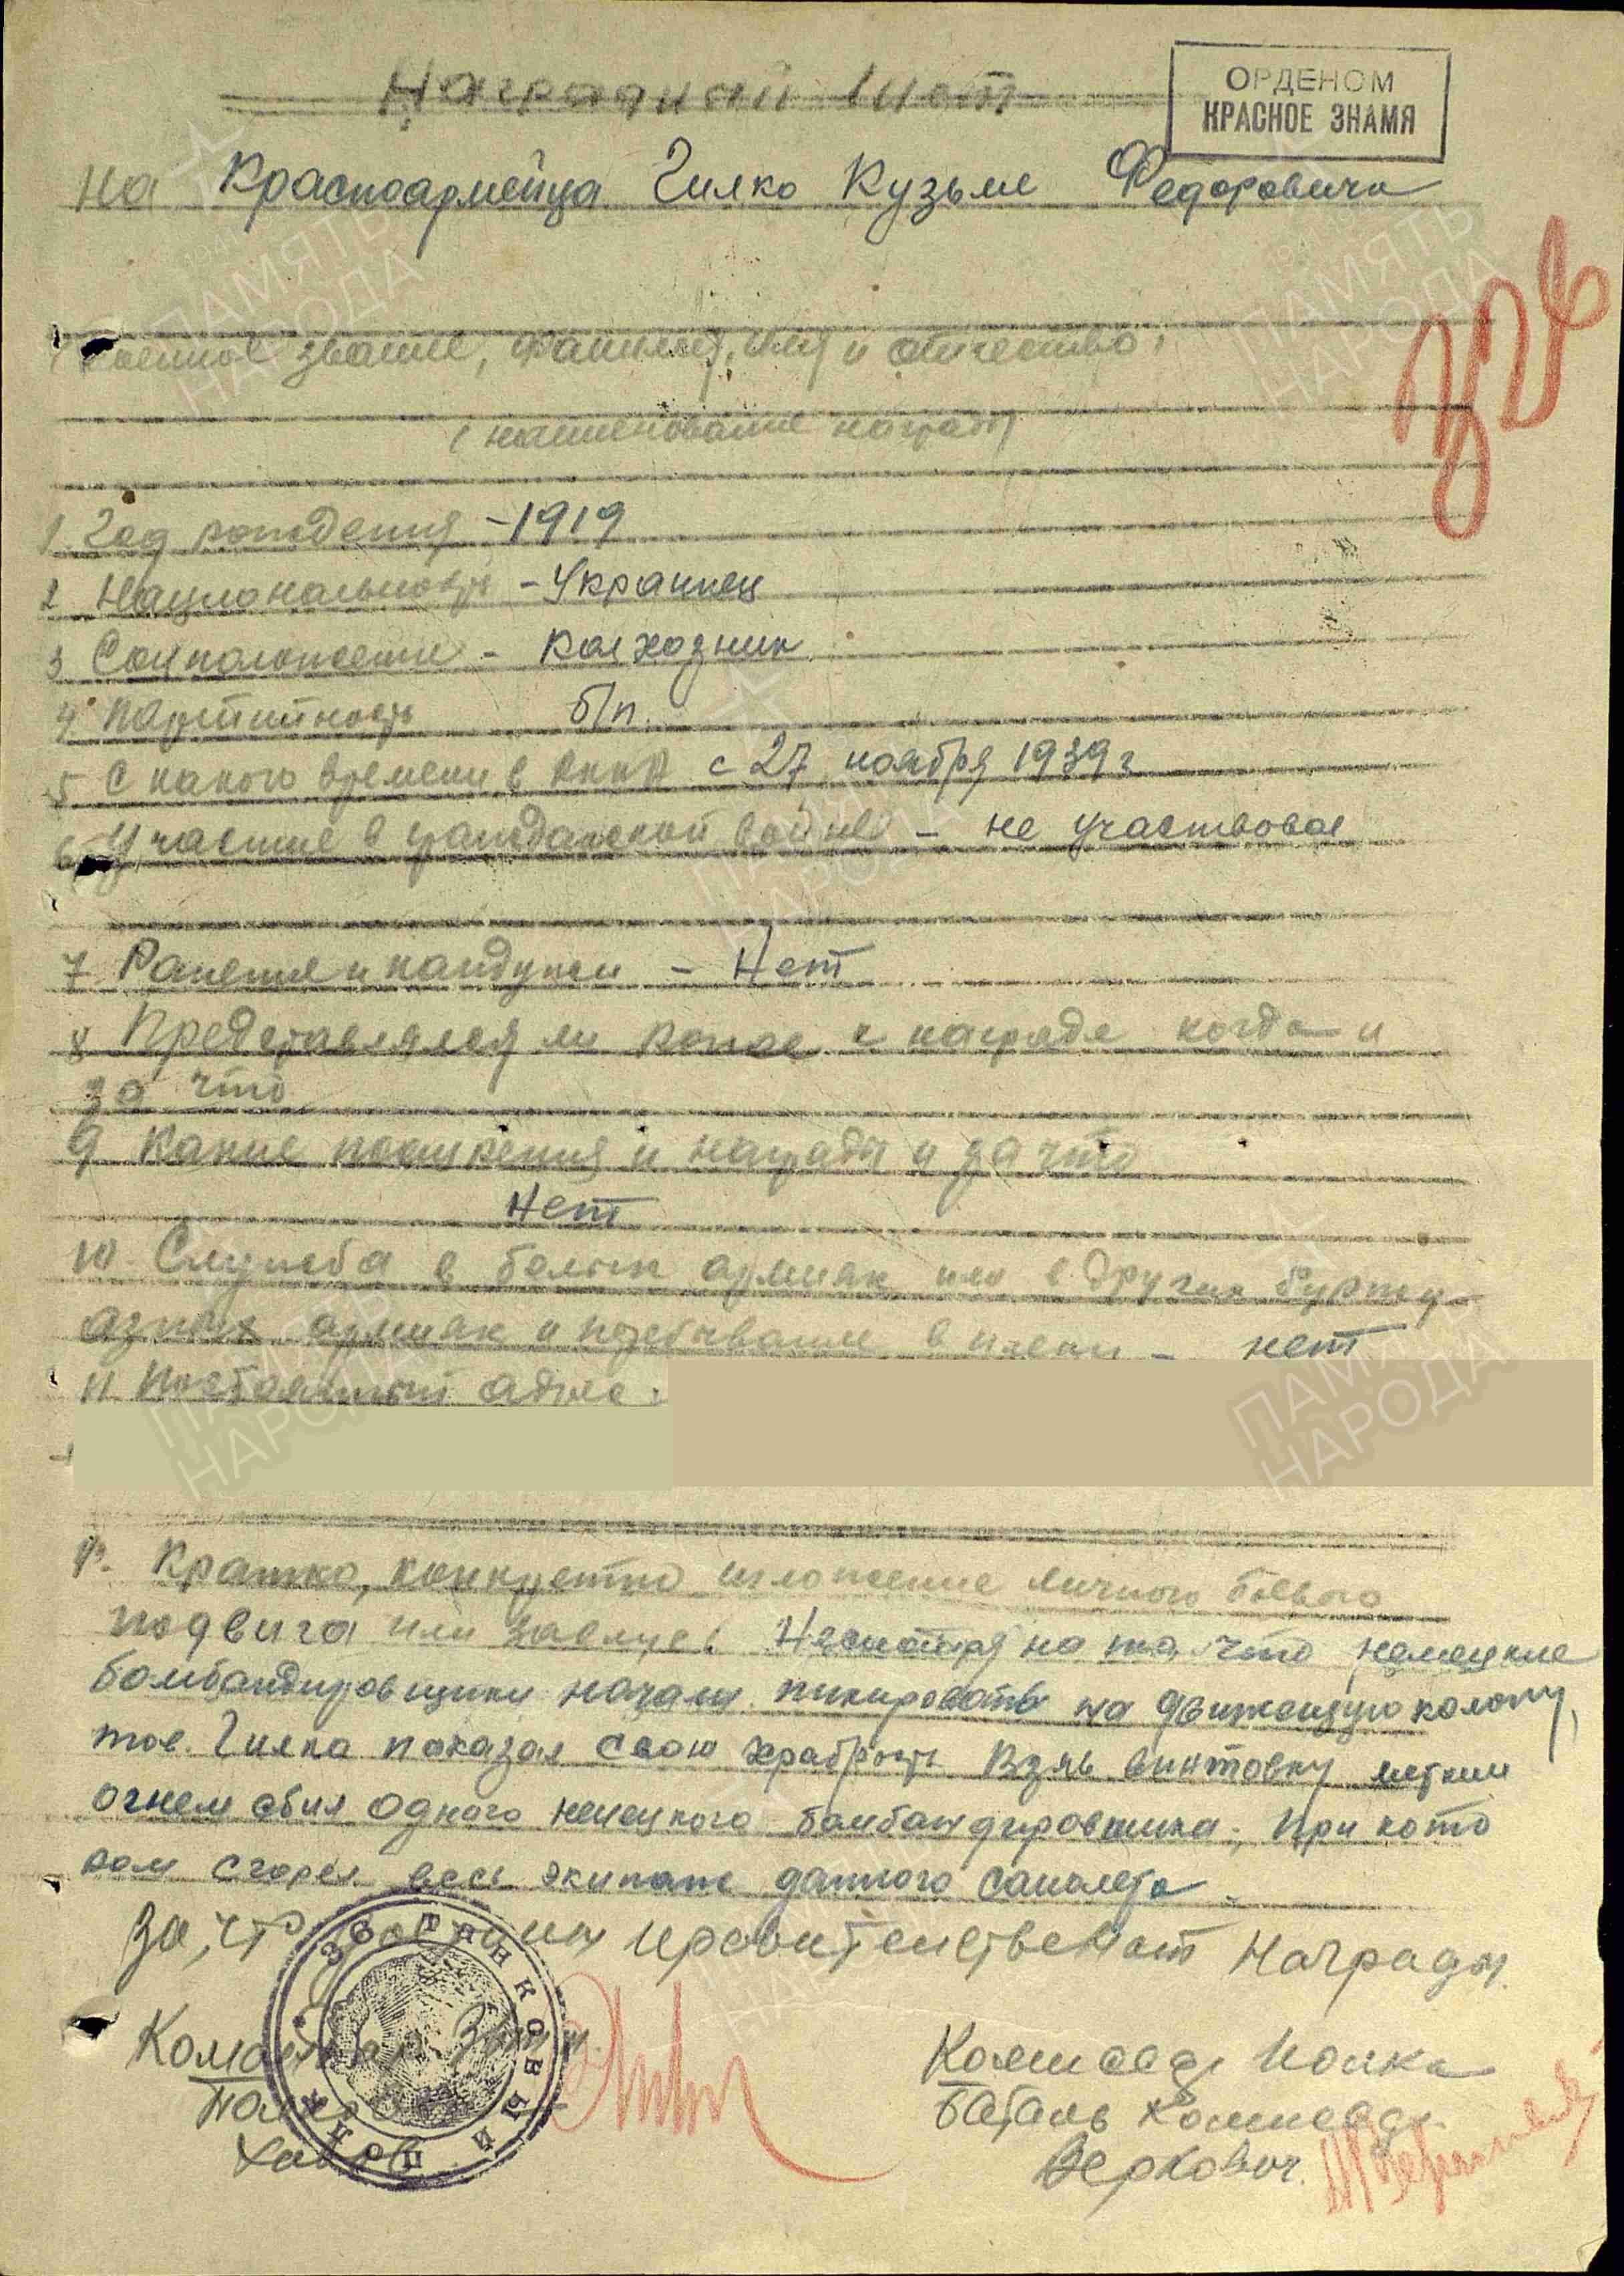 Наградной лист
ОРДЕНОМ
КРАСНОЕ ЗНАМЯ
на Красноармейца Гилко Кузьме Федоровича
(Военное звание, Фамилия, имя и отчество)
(наименование награды)
1. Год рождения - 1919
2 Национальность - Украинец
3 Соцположение - Колхозник
4 Партийность б/п.
5 С какого времени в РККА с 27 ноября 1939 г
6 Участие в гражданской войне - не участвовал
7 Ранения и контузии - Нет
8 Представлялся ли ранее к награде когда и
за что
9 Какие поощрения и награды и за что
Нет
10 Служба в белых армиях или в других буржу-
азных армиях и пребывание в плену - нет
11 Постоянный адрес:
Кратко, конкретно изложение личного боевого
подвига или заслуг. Несмотря на то, что немецкие
бомбандировщики начали пикировать на движещую колону,
тов. Гилко показал свою храбрость взяв винтовку метким
огнем сбил одного немецкого бомбандировщика. При кото
ром сгорел весь экипаж данного самолета.
За, что достоин правительственой Награды.
36 ТАНКОВЫЙ ПОЛК
Командир 36 т.п. Комиссар Полка
Батальт Комиссар
Веркович.
ПАМЯТЬ
НАРОДА